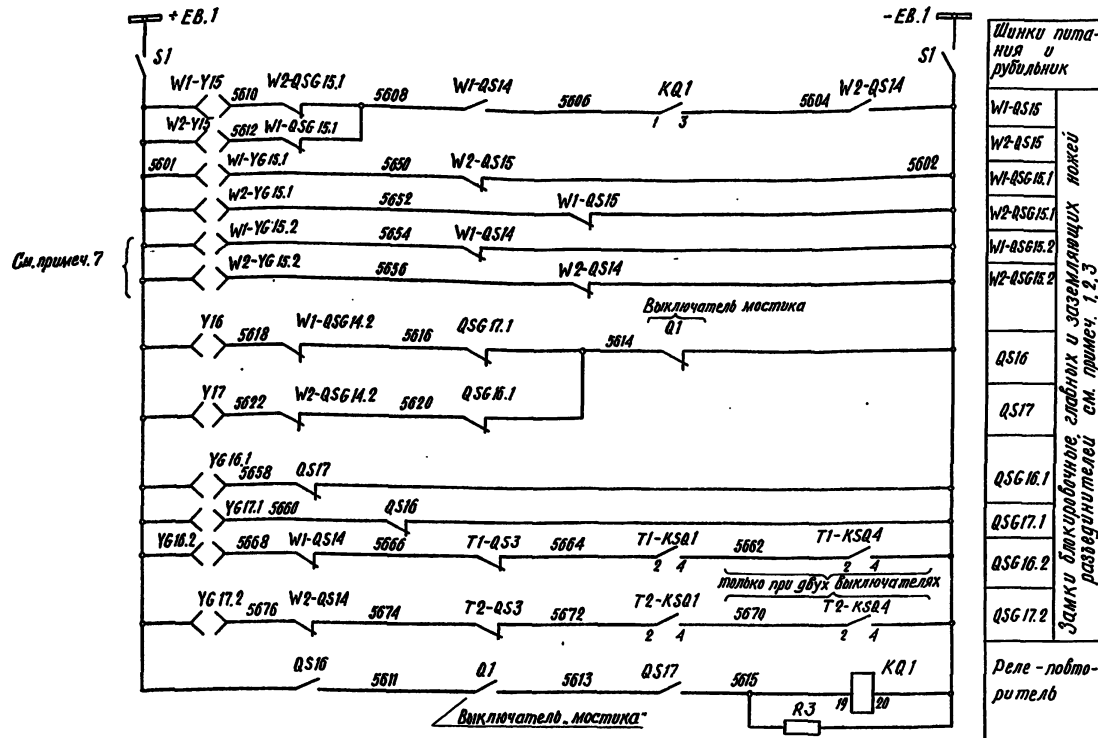 +ЕВ.1
-ЕВ.1
S1
S1
W1-Y15
5610
W2-QSG15.1
5608
W1-QS14
5606
KQ.1
1 3
5604
W2-QS14
W2-Y15
5612
W1-QSG15.1
5601
W1-YG15.1
5650
W2-QS15
5602
W2-YG15.1
5652
W1-QS15
См. примеч. 7
W1-YG15.2
5654
W1-QS14
W2-YG15.2
5656
W2-QS14
Выключатель мостика
Y16
5618
W1-QSG14.2
5616
QSG17.1
5614
Q1
Y17
5622
W2-QSG14.2
5620
QSG16.1
YG16.1
5658
QS17
YG17.1
5660
QS16
YG16.2
5668
W1-QS14
5666
T1-QS3
5664
T1-KSQ.1
2 4
5662
T1-KSQ.4
2 4
только при двух выключателях
YG17.2
5676
W2-QS14
5674
T2-QS3
5672
T2-KSQ.1
2 4
5670
T2-KSQ.4
2 4
QS16
5611
Q1
5613
QS17
5615
KQ.1
19 20
R3
Выключатель „мостика"
Шинки пита-
ния и
рубильник
W1-QS15
W2-QS15
W1-QSG15.1
W2-QSG15.1
W1-QSG15.2
W2-QSG15.2
QS16
QS17
QSG16.1
QSG17.1
QSG16.2
QSG17.2
Замки блокировочные, главных и заземляющих ножей
разъединителей см. примеч. 1,2,3
Реле-повто-
ритель